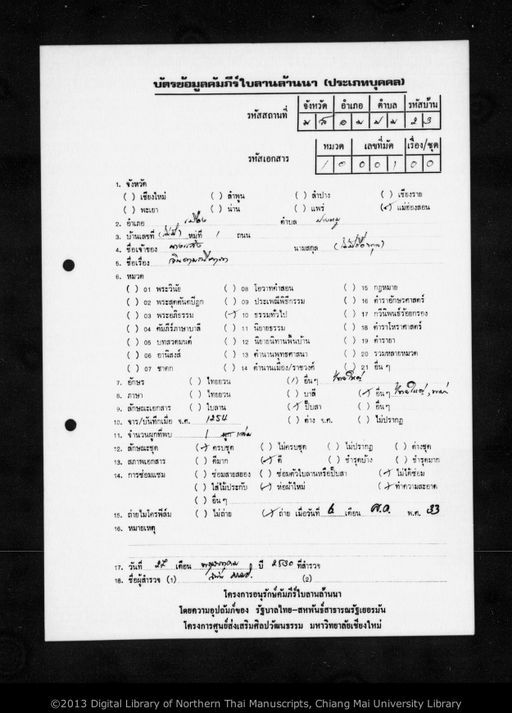 บัตรข้อมูลคัมภีร์ใบลานล้านนา (ประเภทบุคคล)
รหัสสถานที่ จังหวัด อำเภอ ตำบล รหัสบ้าน
ม ส อ ม ป ม 2 3
รหัสเอกสาร หมวด เลขที่มัด เรื่อง/ชุด
1 0 0 0 1 0 0
1. จังหวัด
( ) เชียงใหม่ ( ) ลำพูน ( ) ลำปาง ( ) เชียงราย
( ) พะเยา ( ) น่าน ( ) แพร่ (✓) แม่ฮ่องสอน
2. อำเภอ เมือง ตำบล
3. บ้านเลขที่ (ไม่มี) หมู่ที่ 1 ถนน
4. ชื่อเจ้าของ นามสกุล
5. ชื่อเรื่อง
6. หมวด
( ) 01 พระวินัย ( ) 08 โอวาทคำสอน ( ) 15 กฎหมาย
( ) 02 พระสุตตันตปิฎก ( ) 09 ประเพณีพิธีกรรม ( ) 16 ตำราอักษรศาสตร์
( ) 03 พระอภิธรรม (✓) 10 ธรรมทั่วไป ( ) 17 กวีนิพนธ์ร้อยกรอง
( ) 04 คัมภีร์ภาษาบาลี ( ) 11 นิยายธรรม ( ) 18 ตำราโหราศาสตร์
( ) 05 บทสวดมนต์ ( ) 12 นิยายนิทานพื้นบ้าน ( ) 19 ตำรายา
( ) 06 อานิสงส์ ( ) 13 ตำนานพุทธศาสนา ( ) 20 รวมหลายหมวด
( ) 07 ชาดก ( ) 14 ตำนานเมือง/ราชวงศ์ ( ) 21 อื่น ๆ
7. อักษร ( ) ไทยยวน (/) อื่นๆ ไทยใหญ่
8. ภาษา ( ) ไทยยวน ( ) บาลี (✓) อื่นๆ ไทยใหญ่, พม่า
9. ลักษณะเอกสาร ( ) ใบลาน (✓) ปั๊บสา ( ) อื่นๆ
10. จาร/บันทึกเมื่อ จ.ศ. 1254 ( ) ค่าง จ.ศ. ( ) ไม่ปรากฏ
11. จำนวนผูกที่พบ 1
12. ลักษณะชุด (✓) ครบชุด ( ) ไม่ครบชุด ( ) ไม่ปรากฏ ( ) ต่างชุด
13. สภาพเอกสาร ( ) ดีมาก (✓) ดี ( ) ชำรุดบ้าง ( ) ชำรุดมาก
14. การซ่อมแซม ( ) ซ่อมสายสยอง ( ) ซ่อมตัวใบลานหรือปั๊บสา (✓) ไม่ได้ซ่อม
( ) ใส่ไม้ประกับ (✓) ห่อผ้าใหม่ (✓) ทำความสะอาด
( ) อื่น ๆ
15. ถ่ายไมโครฟิล์ม ( ) ไม่ถ่าย (✓) ถ่าย เมื่อวันที่ 6 เดือน ส.ค. พ.ศ. 33
16. หมายเหตุ
17. วันที่ 27 เดือน พฤษภาคม ปี 2530 ที่สำรวจ
18. ชื่อผู้สำรวจ (1) (2)
โครงการอนุรักษ์คัมภีร์ใบลานล้านนา
โดยความอุปถัมภ์ของ รัฐบาลไทย-สหพันธ์สาธารณรัฐเยอรมัน
โครงการศูนย์ส่งเสริมศิลปวัฒนธรรม มหาวิทยาลัยเชียงใหม่
©2013 Digital Library of Northern Thai Manuscripts, Chiang Mai University Library